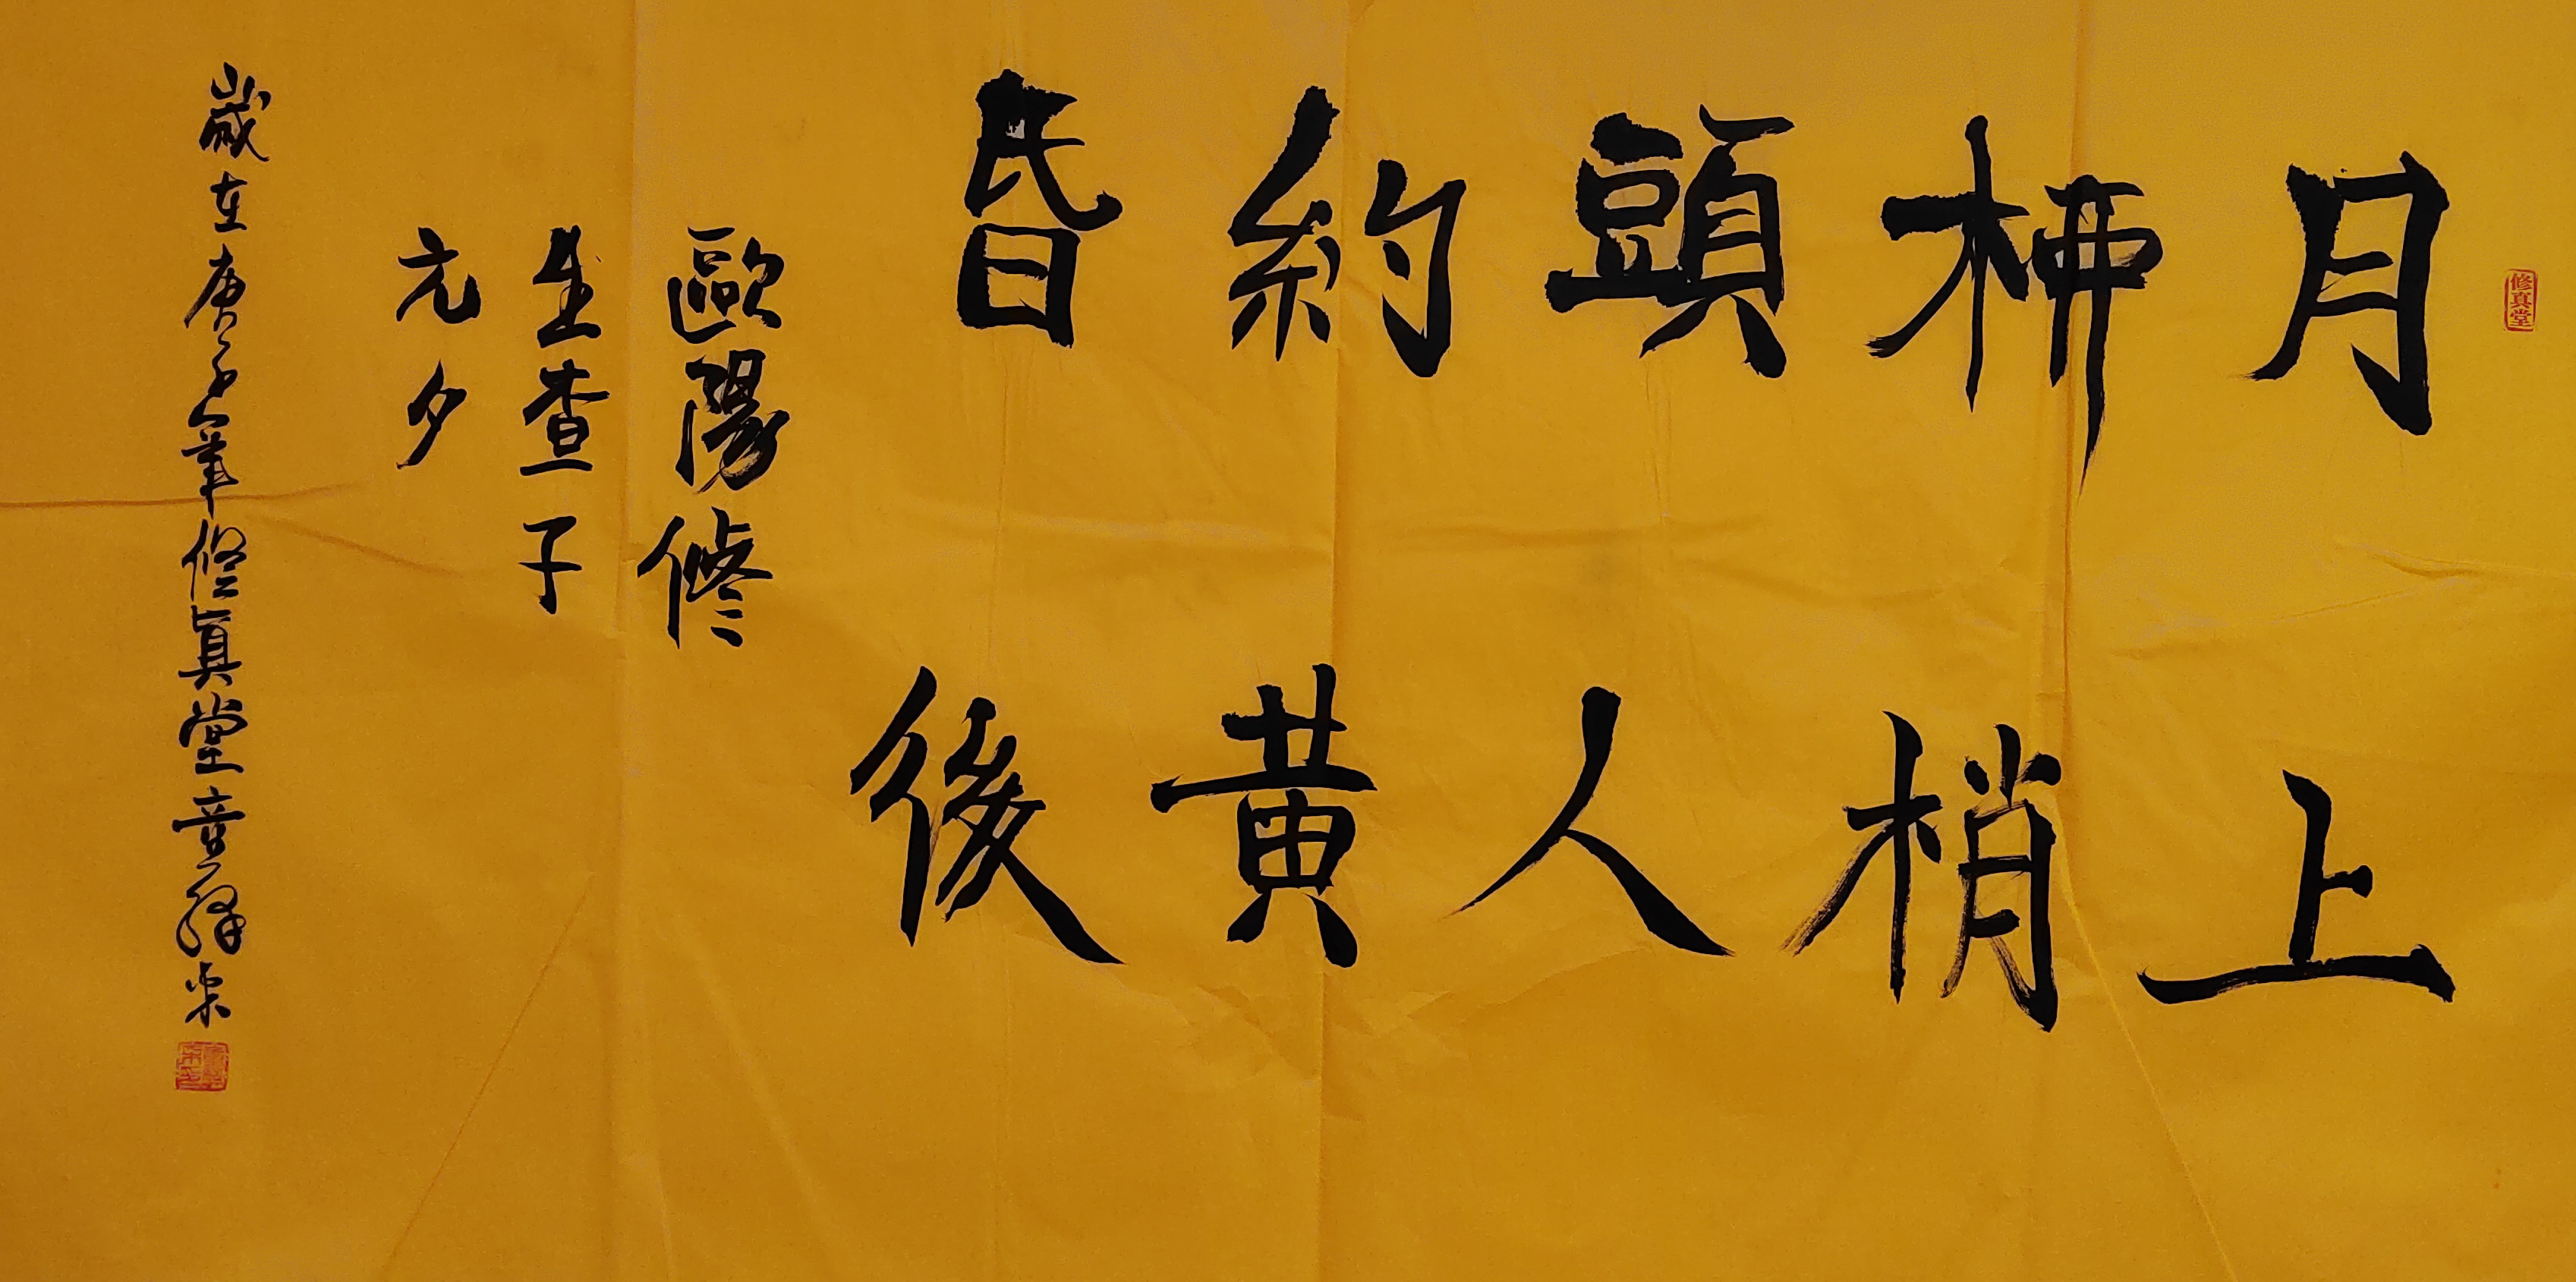 修真堂
月上
柳梢
頭人
約黃
昏後
歐陽修
生查子
元夕
歲在庚子年修真堂